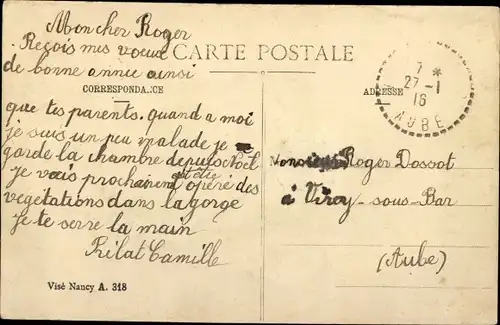 Mon cher Roger
Reçois mes voeux
de bonne année ainsi
CARTE POSTALE
CORRESPONDANCE
ADRESSE
que tes parents, quand a moi
je suis un peu malade je
garde la chambre depuis Noël
je vais prochainem et être opéré des
vegetations dans la gorge
je te serre la main
Rilat Camille
Visé Nancy A. 318
7 *
27-1
16
AUBE
Monsieur Roger Dossot
à Virey-sous-Bar
(Aube)